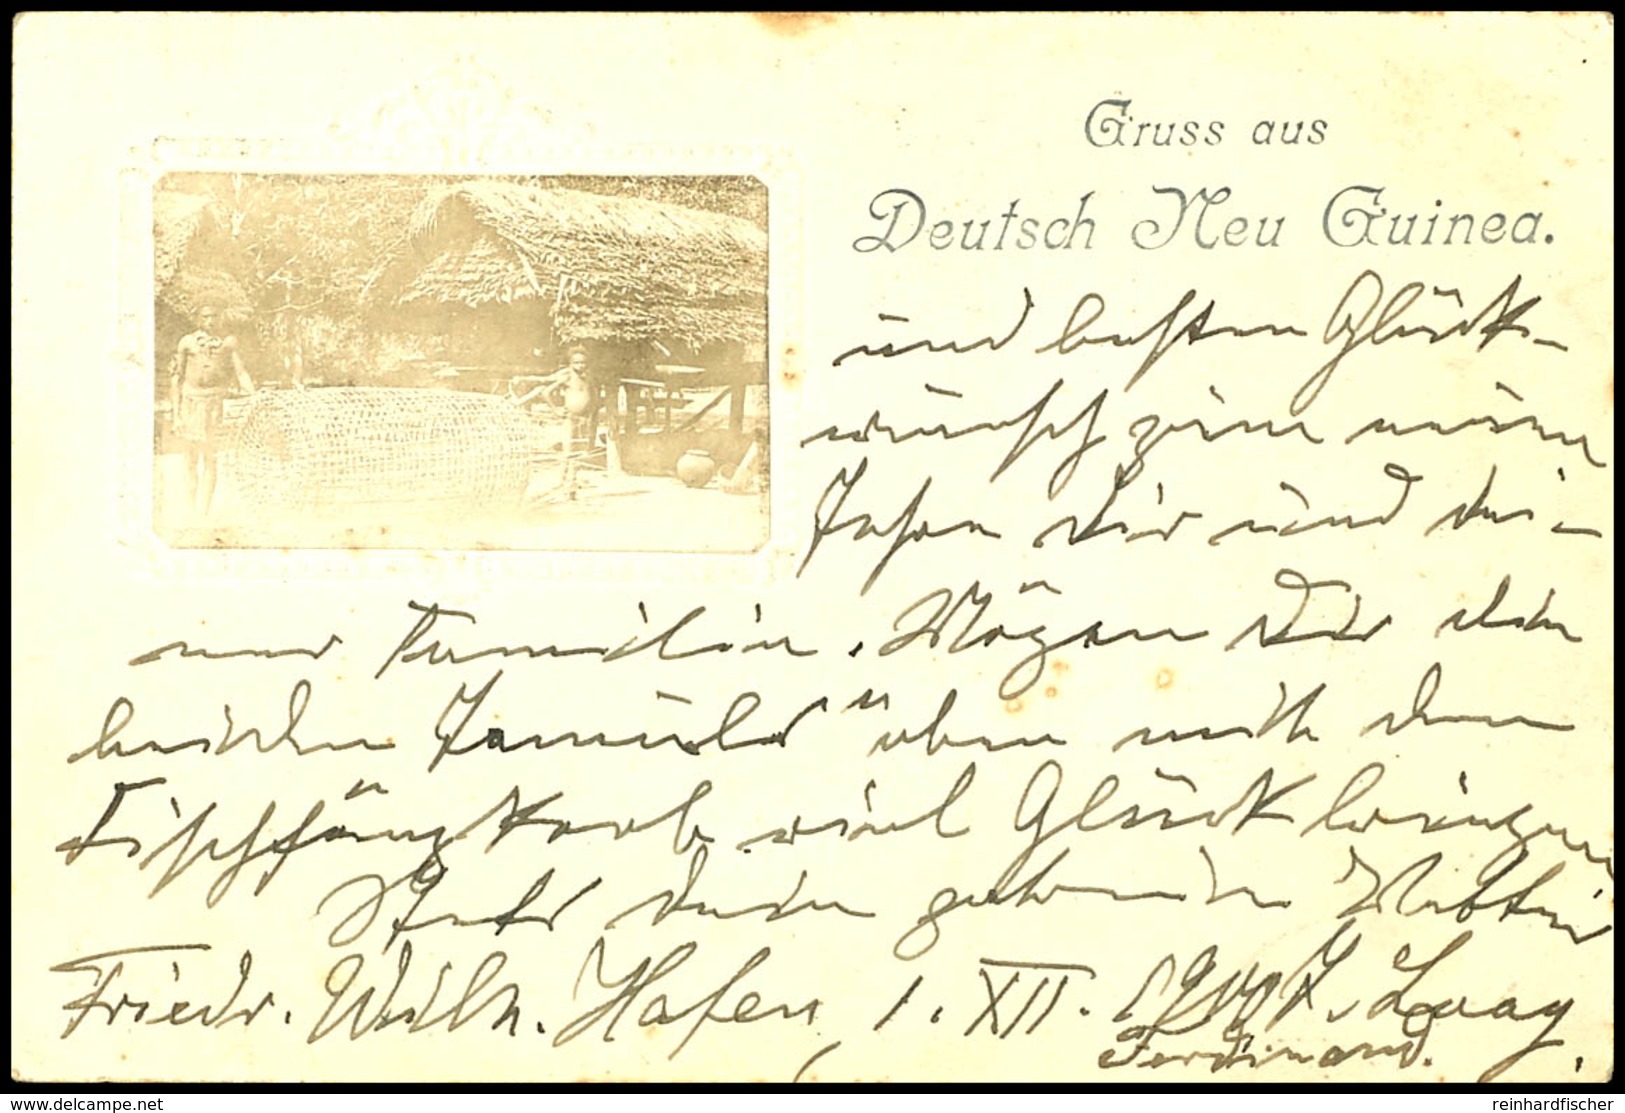 Gruss aus
Deutsch Neu Guinea.
und besten Glück-
wunsch zum neuen
Jahre Dir und dei-
ner Familie. Mögen Dir die
beiden üben mit dem
Fischfang Korb viel Glück bringen
Stets Dein
Friedr. Wilh. Hafen, 1. XII.
Ferdinand.
delcampe.net
reinhardfischer